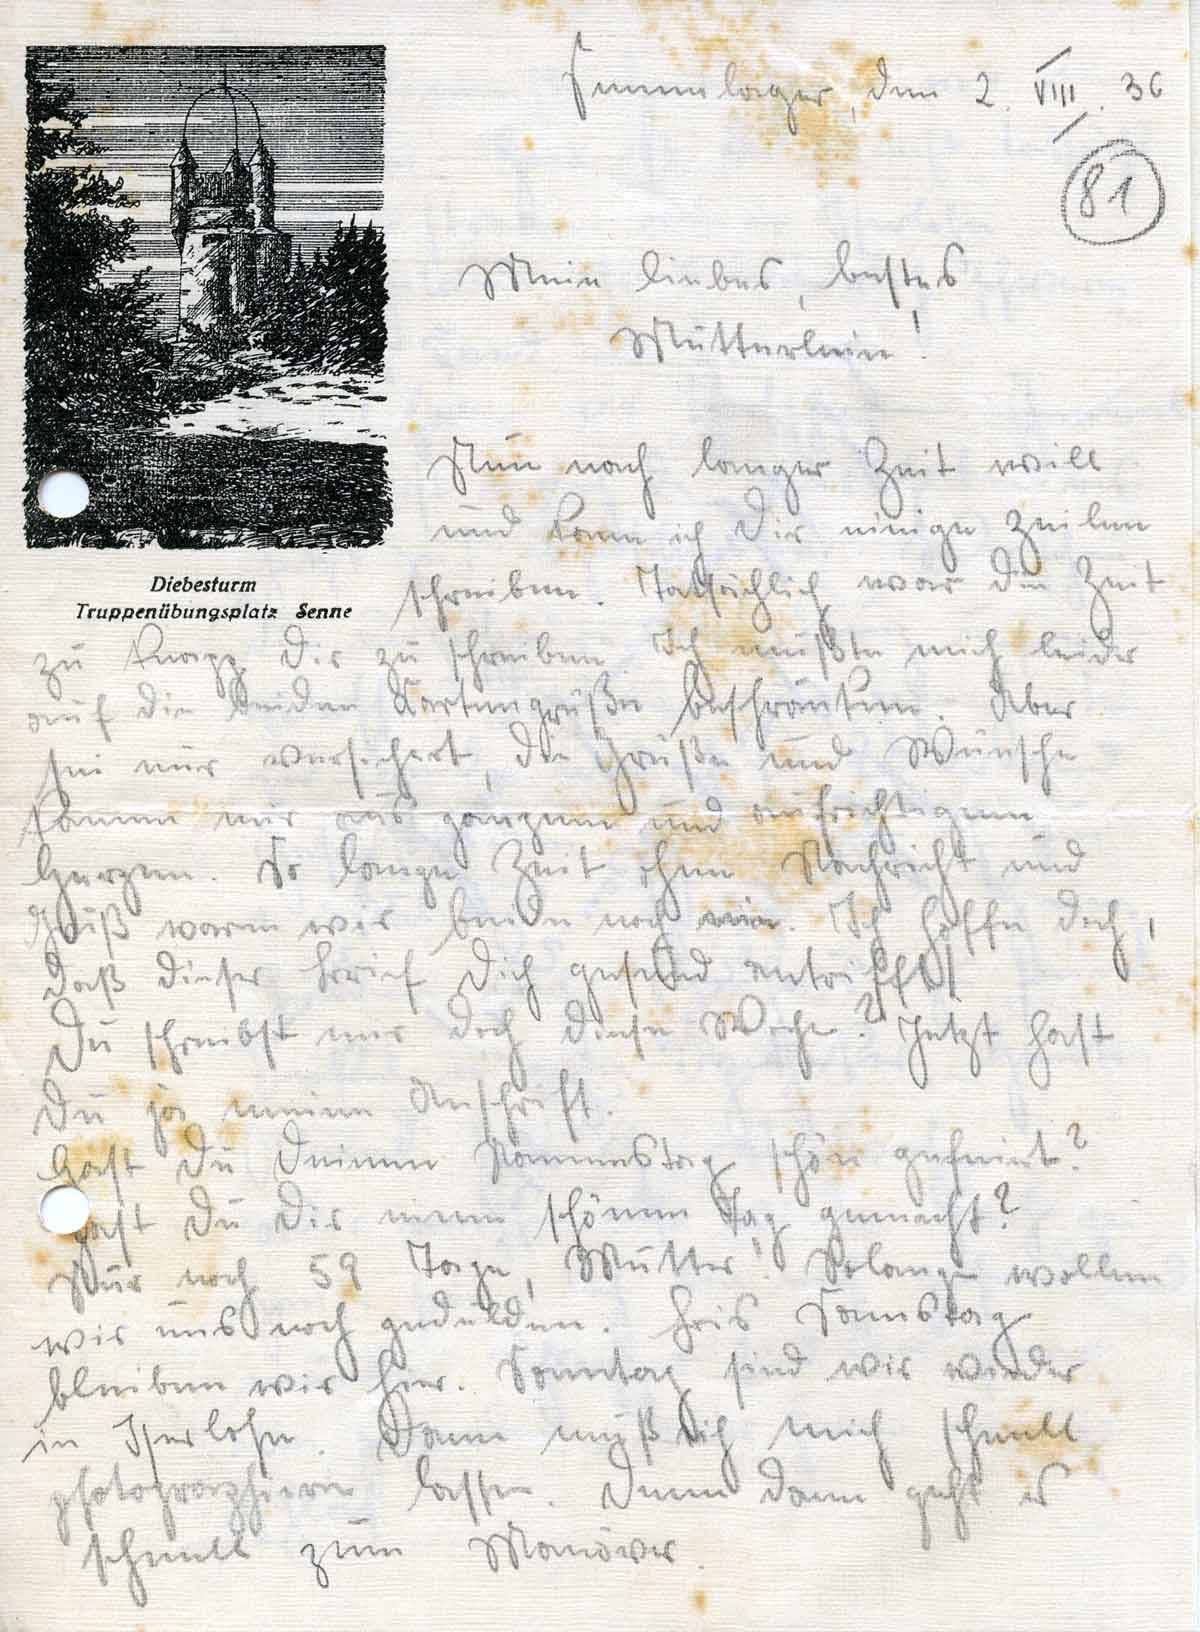 Sennelager, den 2. VIII. 36
81
Mein liebes, bestes
Mütterlein!
Nun nach langer Zeit will
und kann ich Dir einige Zeilen
Diebesturm
Truppenübungsplatz Senne
schreiben. Tatsächlich war die Zeit
zu knapp Dir zu schreiben. Ich mußte mich leider
auf die beiden Kartengrüße beschränken. Aber
sei nur versichert, die Grüße und Wünsche
kamen mir aus ganzem und aufrichtigem
Herzen. So lange Zeit ohne Nachricht und
Gruß waren wir beide noch nie. Ich hoffe doch,
daß dieser Brief Dich gesund antrifft!
Du schreibst mir doch diese Woche? Jetzt hast
Du ja meine Anschrift.
Hast Du Deinen Namenstag schön gefeiert?
Hast Du Dir einen schönen Tag gemacht?
Nur noch 59 Tage, Mutter! Solange wollen
wir uns noch gedulden. Bis Samstag
bleiben wir hier. Sonntag sind wir wieder
in Iserlohn. Dann muß ich mich schnell
photographieren lassen. Denn dann geht es
schnell zum Manöver.